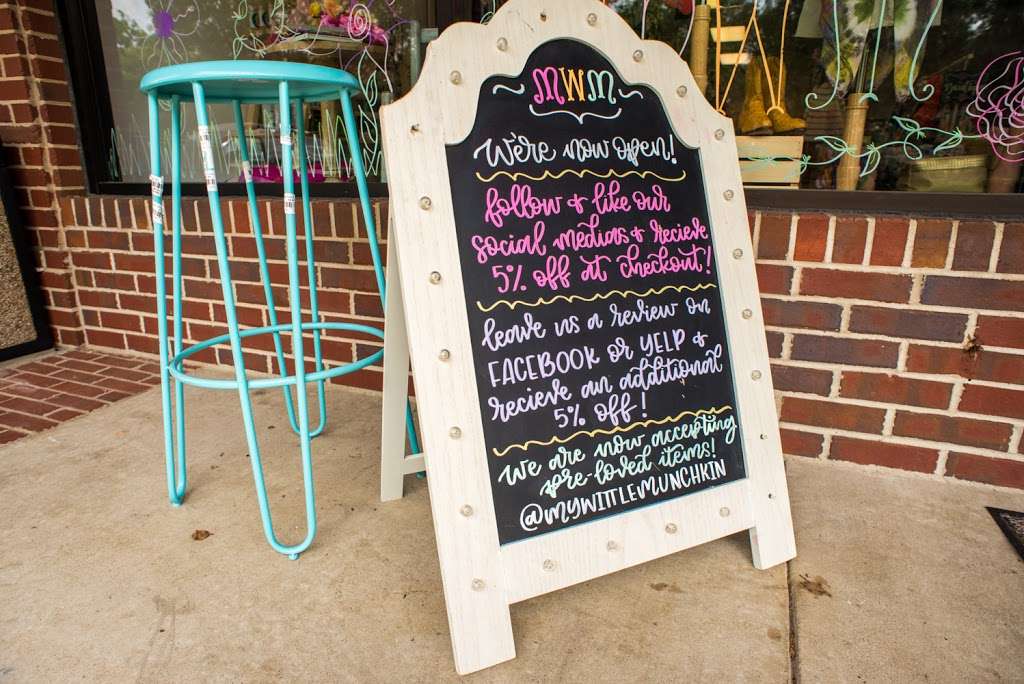 MWM
We're now open!
follow & like our
social medias & recieve
5% off at checkout!
leave us a review on
FACEBOOK or YELP &
recieve an additional
5% off!
we are now accepting
pre-loved items!
@MYWITTLEMUNCHKIN